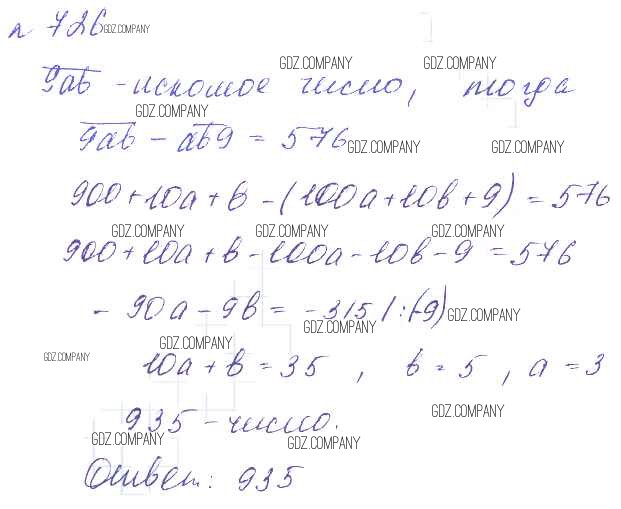 n 726 GDZ.COMPANY
GDZ.COMPANY GDZ.COMPANY
9ab - искомое число, тогда
GDZ.COMPANY
9ab - ab9 = 576 GDZ.COMPANY GDZ.COMPANY
900+10a+b-(100a+10b+9)=576
GDZ.COMPANY GDZ.COMPANY GDZ.COMPANY
900+10a+b-100a-10b-9=576
- 90a - 9b = -315 / :(-9) GDZ.COMPANY
GDZ.COMPANY
GDZ.COMPANY
GDZ.COMPANY
10a+b=35, b=5, a=3
GDZ.COMPANY
935 - число.
GDZ.COMPANY GDZ.COMPANY
Ответ: 935